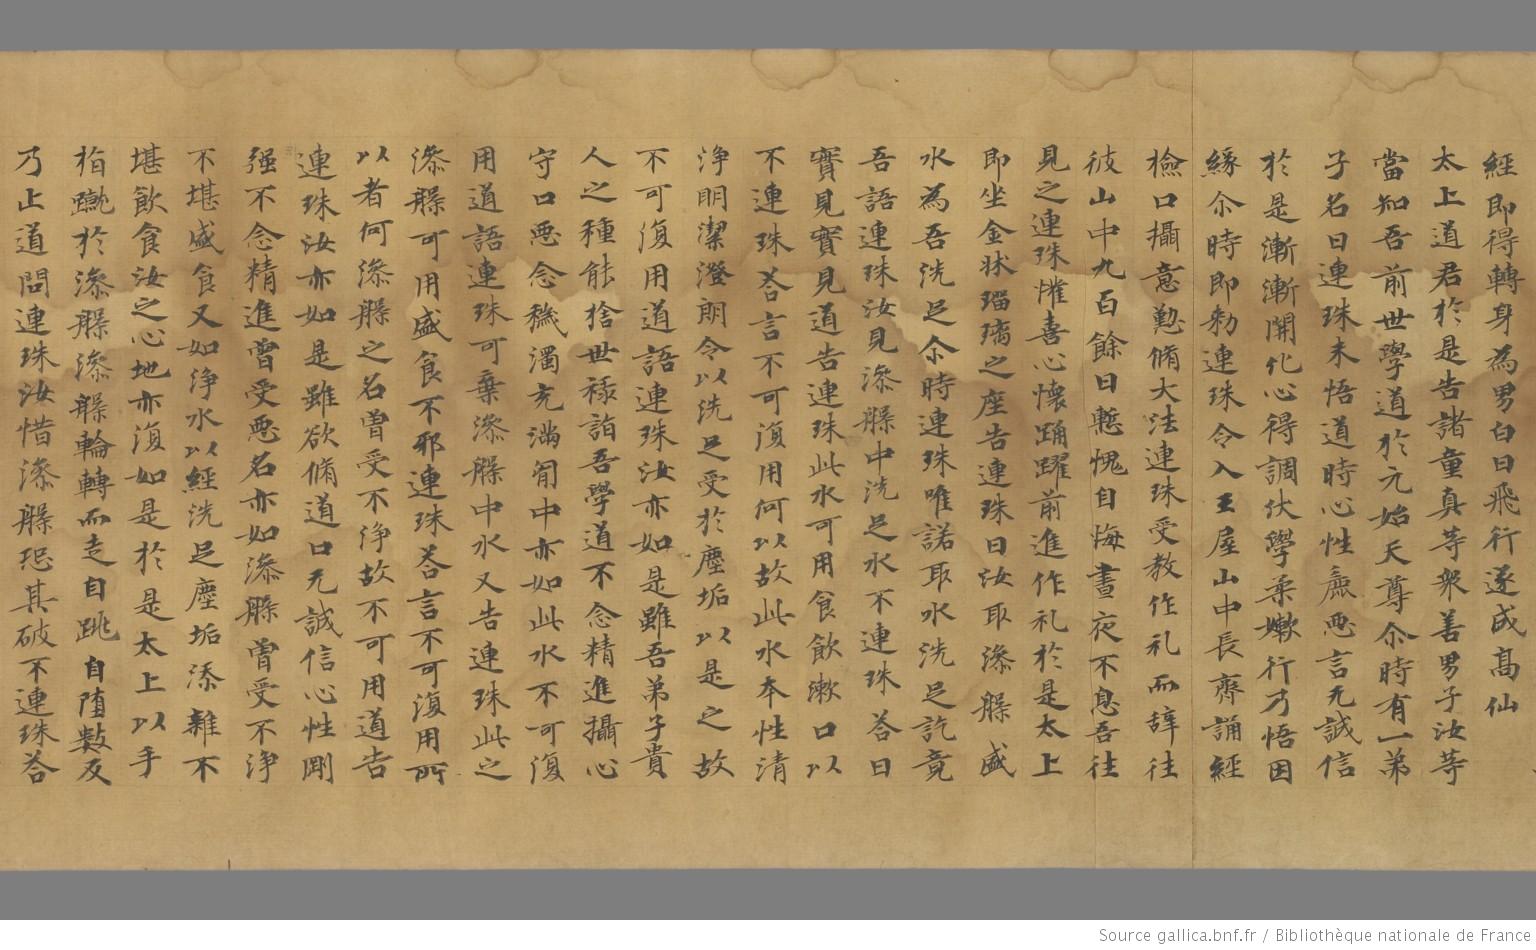 經即得轉身為男白日飛行遂成高仙
太上道君於是告諸童真等衆善男子汝等
當知吾前世學道於元始天尊尒時有一弟
子名曰連珠未悟道時心性麁惡言无誠信
於是漸漸開化心得調伏學柔嫰行乃悟因
緣尒時即勑連珠令入王屋山中長齊誦經
檢口攝意懃脩大法連珠受教作礼而辞往
彼山中九百餘日慙愧自悔晝夜不息吾往
見之連珠懽喜心懷踊躍前進作礼於是太上
即坐金牀瑠璃之座告連珠曰汝取澡槃盛
水為吾洗足尒時連珠唯諾取水洗足訖竟
吾語連珠汝見澡槃中洗足水不連珠荅曰
實見實見道告連珠此水可用食飲漱口以
不連珠荅言不可復用何以故此水本性清
淨明潔澄朗今以洗足受於塵垢以是之故
不可復用道語連珠汝亦如是雖吾弟子貴
人之種能捨世祿詣吾學道不念精進攝心
守口惡念穢濁充滿匈中亦如此水不可復
用道語連珠可棄澡槃中水又告連珠此之
澡槃可用盛食不邪連珠荅言不可復用所
以者何澡槃之名曽受不淨故不可用道告
連珠汝亦如是雖欲脩道口无誠信心性剛
强不念精進曽受惡名亦如澡槃曽受不淨
不堪盛食又如淨水以經洗足塵垢添雜不
堪飲食汝之心地亦復如是於是太上以手
指於澡槃澡槃輪轉而走自跳自墮數反
乃止道問連珠汝惜澡槃恐其破不連珠荅